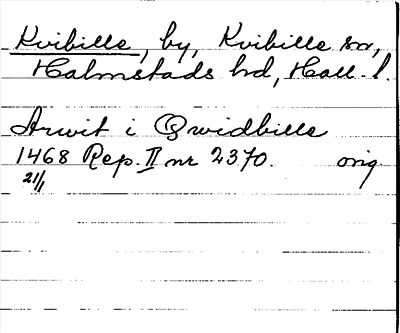 Kvibille, by, Kvibille sn,
Halmstads hd, Hall. l.
Arwit i Qwidbille
1468 Rep. II nr 2370. orig.
21/1